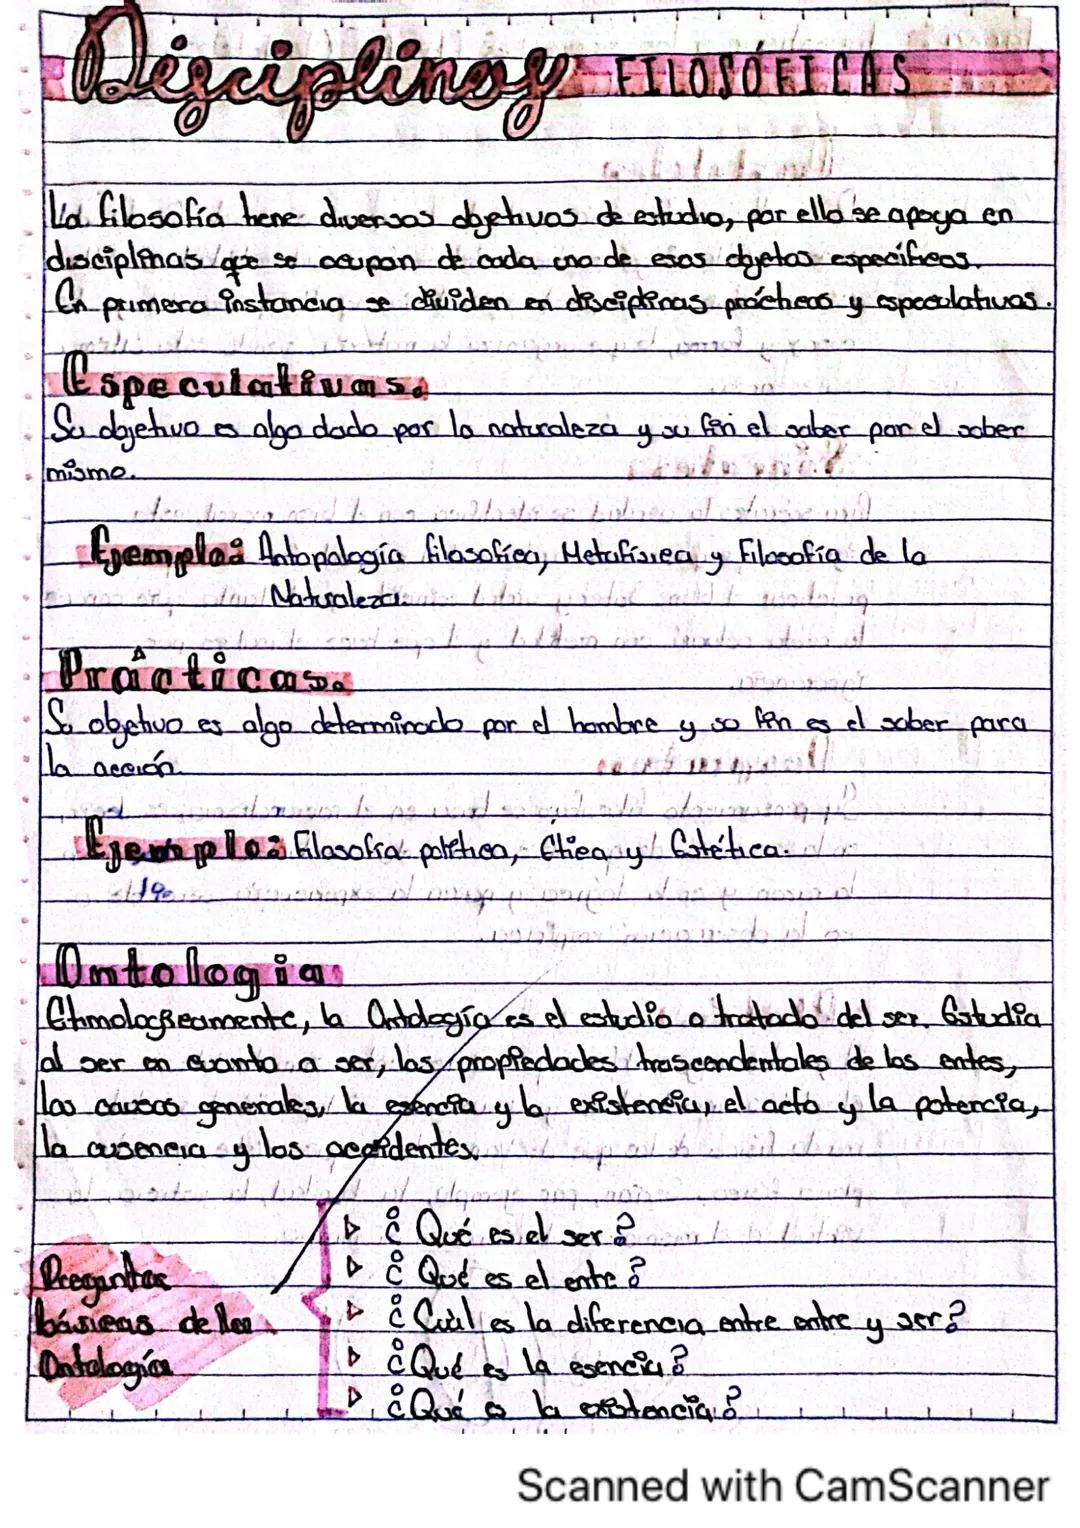 Disciplinas FILOSÓFICAS
La filosofía tiene diversos objetivos de estudio, por ello se apoya en
disciplinas que se ocupan de cada una de esos objetos específicos.
En primera instancia se dividen en disciplinas prácticas y especulativas.
Especulativas.
Su objetivo es algo dado por la naturaleza y su fin el saber por el saber
mismo.
Ejemplo: Antopología filosofica, Metafísica y Filosofía de la
Naturaleza.
Prácticas.
Su objetivo es algo determinado por el hombre y su fin es el saber para
la acción.
Ejemplo: Filosofia política, Etica y Estética.
Ontologia
Etimologicamente, la Ontología es el estudio o tratado del ser. Estudia
al ser en cuanto a ser, las propiedades trascendentales de los entes,
las causas generales, la esencia y la existencia, el acto y la potencia,
la ausencia y los accidentes.
Preguntas
básicas de la
Ontología
¿Qué es el ser?
¿Qué es el ente?
¿Cuál es la diferencia entre entre y ser?
¿Qué es la esencia?
¿Qué es la existencia?
Scanned with CamScanner